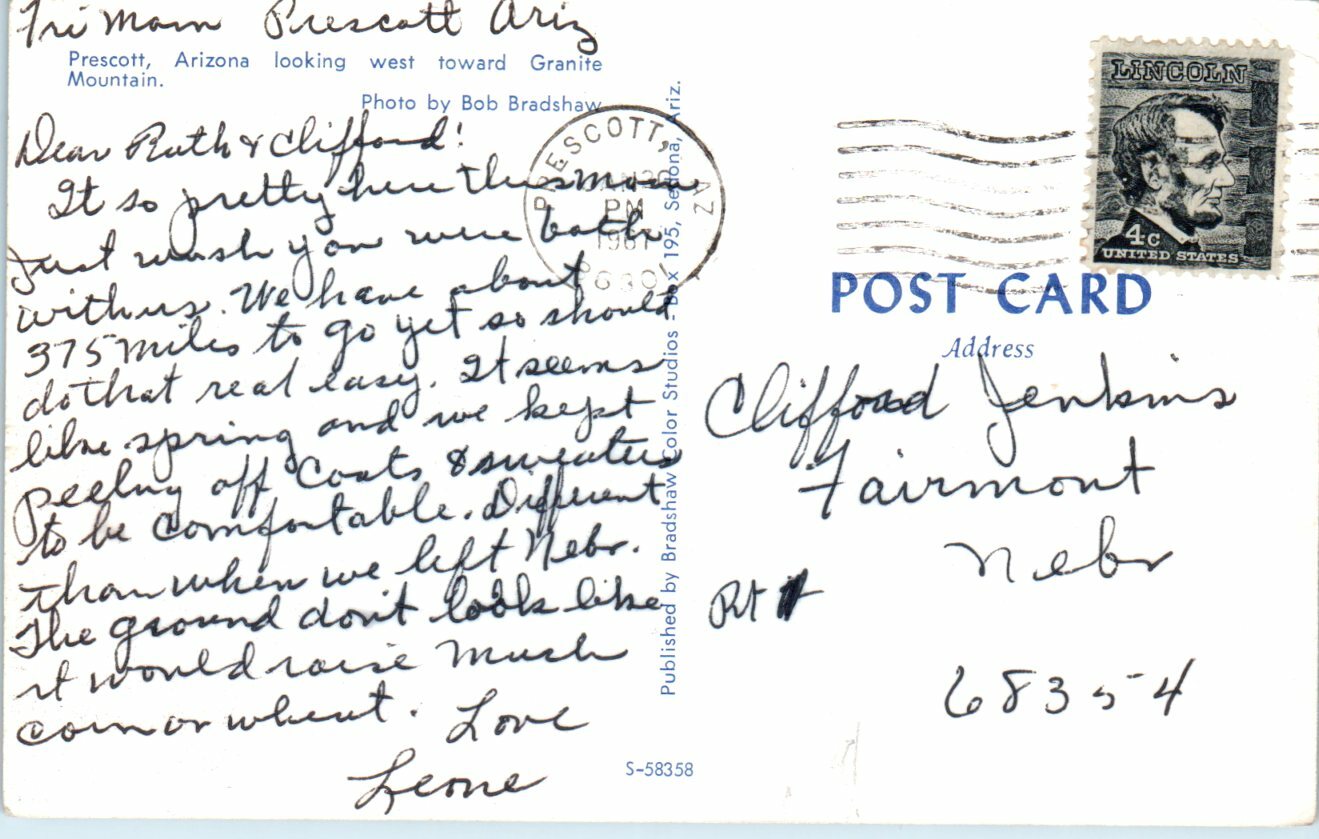 Fri Morn Prescott Ariz
Prescott, Arizona looking west toward Granite
Mountain.
Photo by Bob Bradshaw
Dear Ruth & Clifford!
It so pretty here this morn
Just wish you were both
with us. We have about
375 miles to go yet so should
do that real easy. It seems
like spring and we kept
peeling off Coats & sweaters
to be comfortable. Different
than when we left Nebr.
The ground don't look like
it would raise much
corn or wheat. Love
Leone
Published by Bradshaw Color Studios - Box 195, Sedona, Ariz.
S-58358
PRESCOTT, ARIZ
PM
LINCOLN
4c
UNITED STATES
POST CARD
Address
Clifford Jenkins
Fairmont
Nebr
Rt
68354